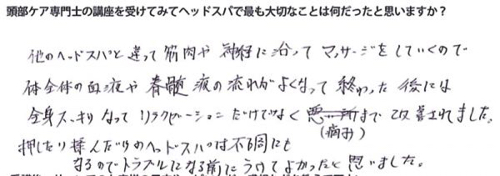 頭部ケア専門士の講座を受けてみてヘッドスパで最も大切なことは何だったと思いますか？
他のヘッドスパと違って筋肉や神経に沿ってマッサージをしていくので
体全体の血液や脊髄液の流れがよくなって終わった後には
全身スッキリなってリラクゼーションだけでなく悪い所まで改善されました。
(痛み)
押したり揉んだりのヘッドスパは不調にも
なるのでトラブルになる前にうけてよかったと思いました。